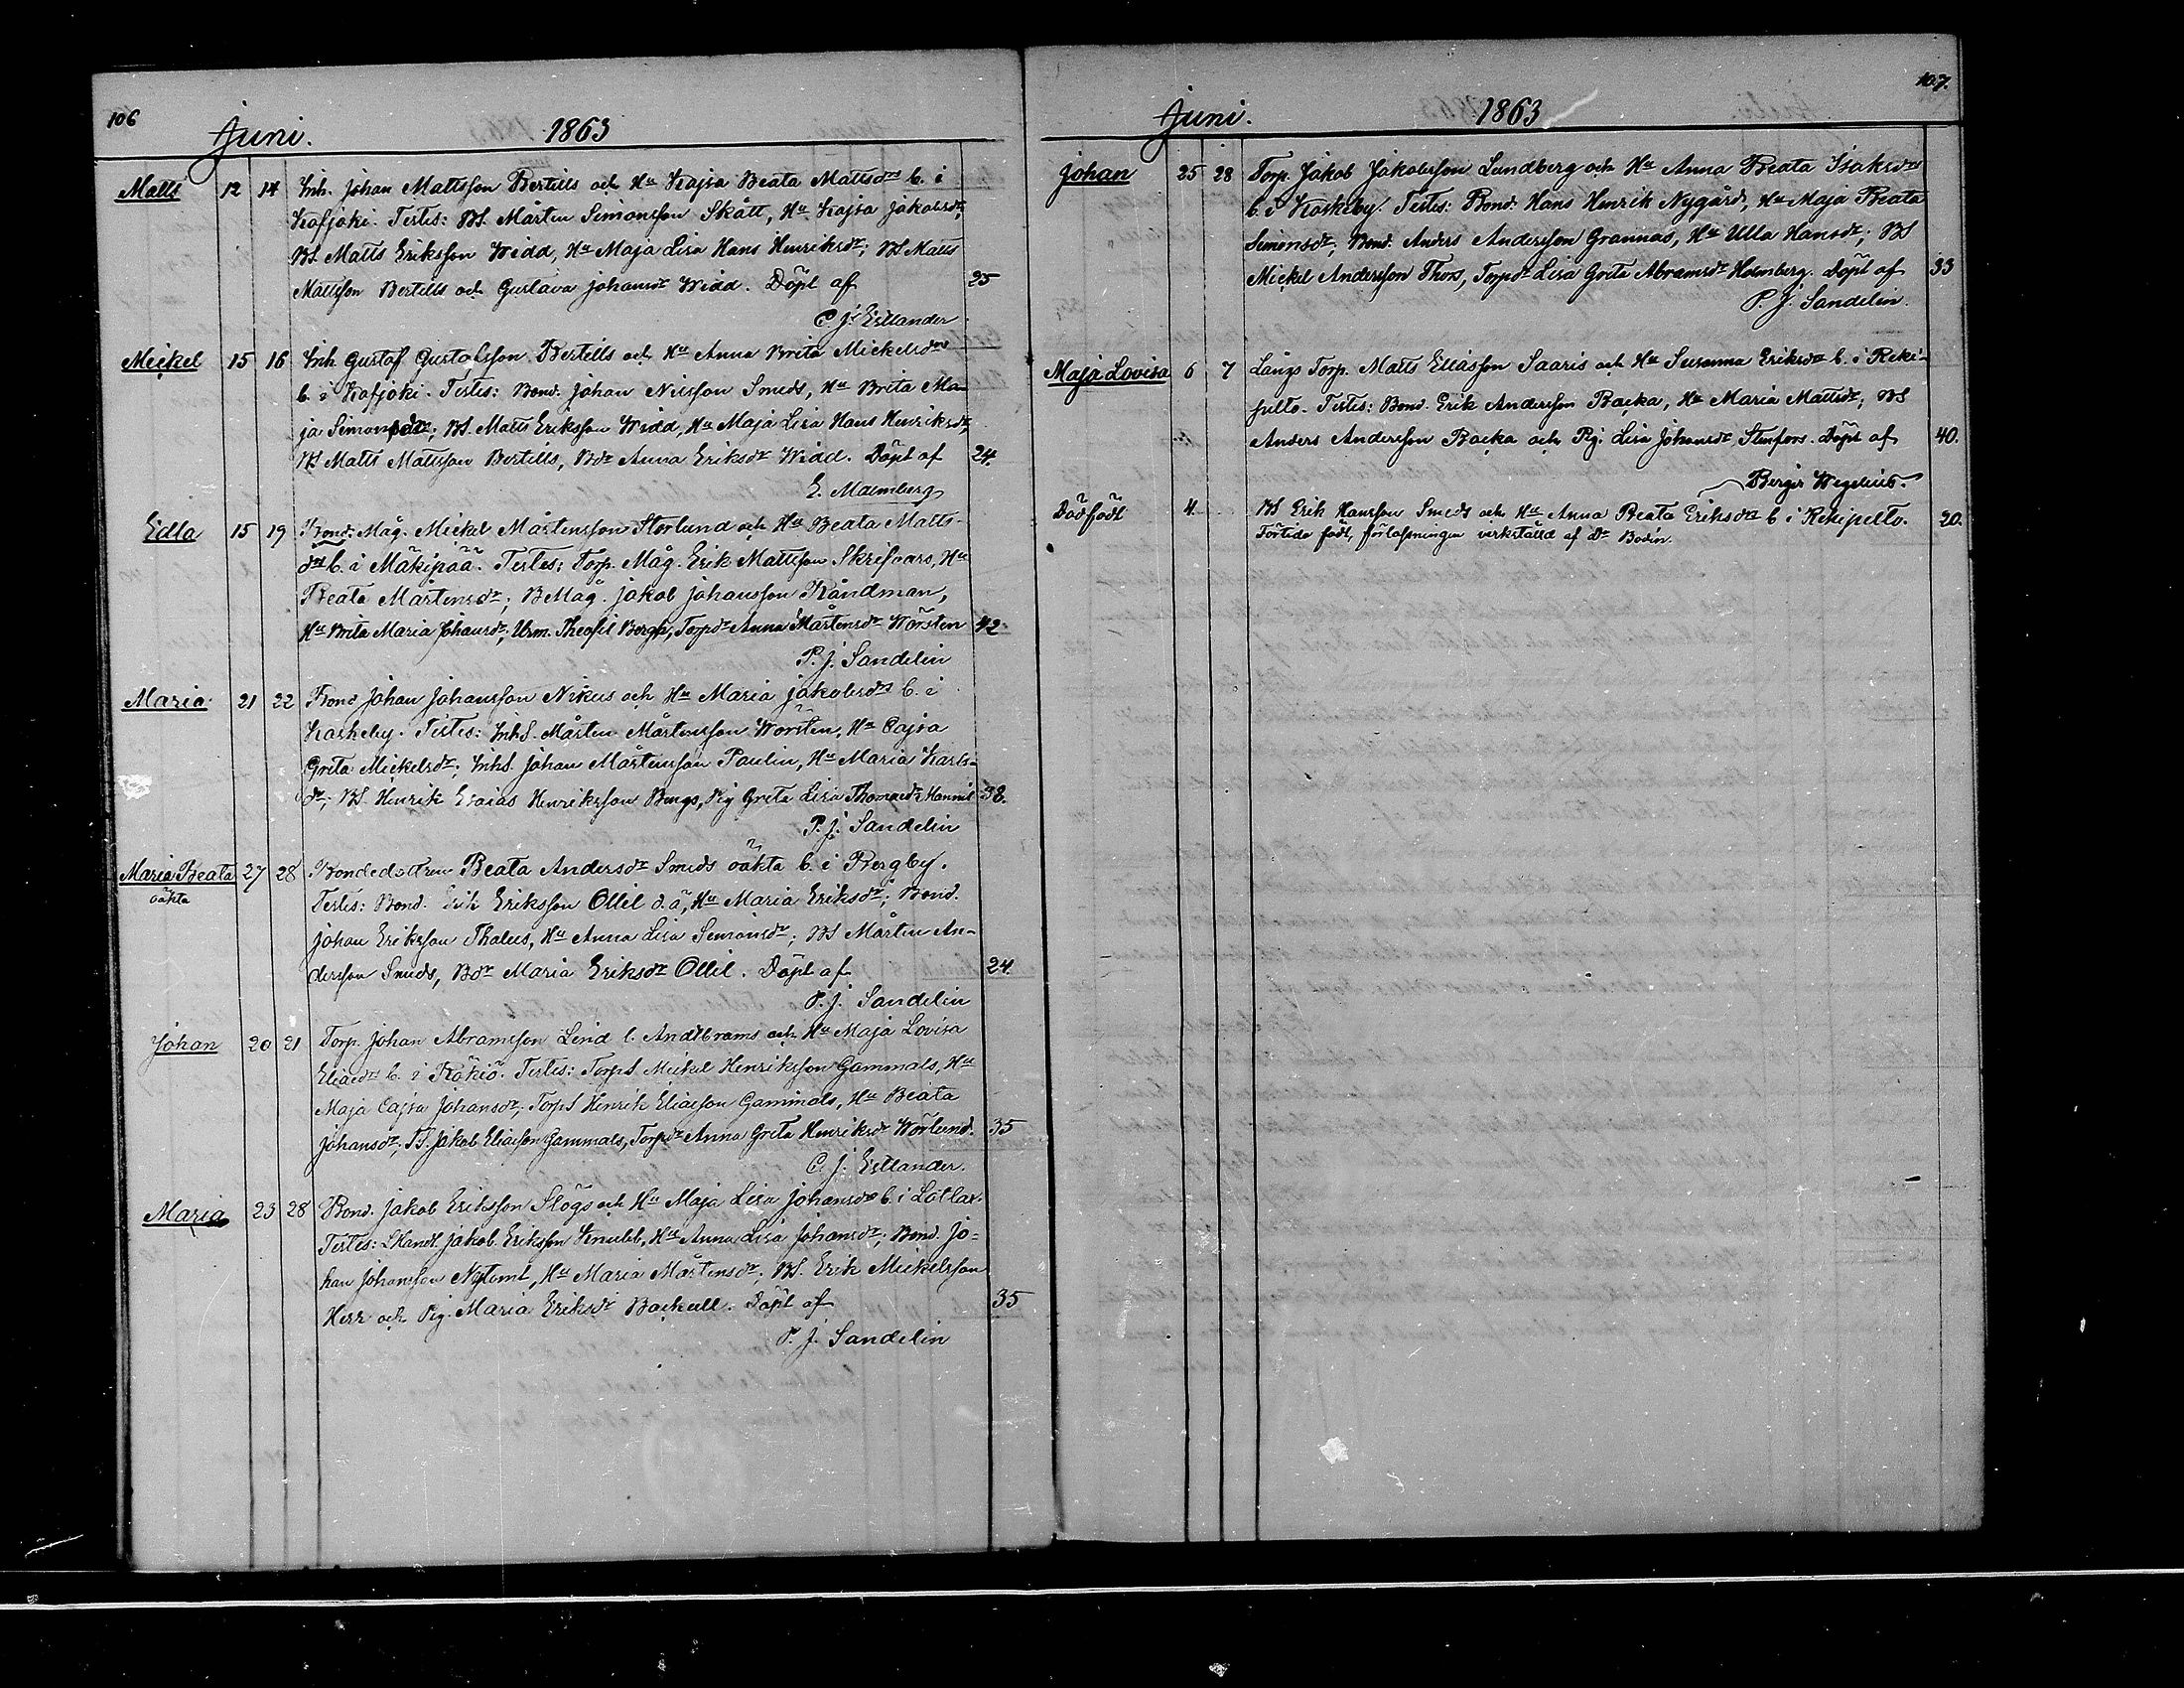 106
Juni. 1863
Matts 12 14 Inh. Johan Mattsson Bertills och Hu Kajsa Beata Mattsdr b. i
Kafjoki. Testes: BS. Mårten Simonsson Skått, Hu Kajsa Jakobsdr;
BS. Matts Eriksson Widd, Hu Maja Lisa Hans Henriksdr; BS Matts
Mattsson Bertills och Gustava Johansdr Widd. Döpt af 25
C. J. Estlander
Mickel 15 16 Inh. Gustaf Gustafsson Bertills och Hu Anna Brita Mickelsdr
b. i Kafjoki. Testes: Bond. Johan Nilsson Smeds, Hu Brita Ma
ja Simonsdr; BS. Matts Eriksson Widd, Hu Maja Lisa Hans Henriksdr;
BS Matts Mattsson Bertills, Bdr Anna Eriksdr Widd. Döpt af 24.
E. Malmberg
Edla 15 19 Bond: Måg. Mickel Mårtensson Storlund och Hu Beata Matts-
dr b. i Mäkipää. Testes: Torp. Måg. Erik Mattsson Skrifvars, Hu
Beata Mårtensdr; BMåg. Jakob Johansson Råndman,
Hu Brita Maria Johansdr; Urm. Theofil Bergh, Torpdr Anna Mårtensdr Wörsten 42
P. J. Sandelin
Maria 21 22 Bond Johan Johansson Nikus och Hu Maria Jakobsdr b. i
Kaskeby. Testes: InhS. Mårten Mårtensson Wörsten, Hu Cajsa
Greta Mickelsdr; InhS. Johan Mårtensson Paulin, Hu Maria Karls-
dr; BS. Henrik Esaias Henriksson Bengs, Pig Greta Lisa Thomasdr Mannil 38.
P. J. Sandelin
Maria Beata 27 28 Bondedottren Beata Andersdr Smeds oäkta b. i Bergby.
oäkta
Testes: Bond. Erik Eriksson Ollil d.ä, Hu Maria Eriksdr; Bond.
Johan Eriksson Thalus, Hu Anna Lisa Simonsdr; BS Mårten An-
dersson Smeds, Bdr Maria Eriksdr Ollil. Döpt af 24.
P. J. Sandelin
Johan 20 21 Torp. Johan Abramsson Lind l. Andtbrams och Hu Maja Lovisa
Eliaedr b. i Rökiö. Testes: TorpS Mickel Henriksson Gammals, Hu
Maja Cajsa Johansdr; TorpS Henrik Eliaeson Gammals, Hu Beata
Johansdr; TS. Jakob Eliaeson Gammals, Torpdr Anna Greta Henriksdr Wörlund. 35
C. J. Estlander.
Maria 23 28 Bond. Jakob Eriksson Slögs och Hu Maja Lisa Johansdr b. i Lotlax.
Testes: LHandl. Jakob Eriksson Knubb, Hu Anna Lisa Johansdr; Bond. Jo-
han Johansson Nytomt, Hu Maria Mårtensdr; BS. Erik Mickelsson
Herr och Pig. Maria Eriksdr Backull. Döpt af 35
P. J. Sandelin
107.
Juni. 1863
Johan 25 28 Torp. Jakob Jakobsson Lundberg och Hu Anna Beata Isaksdr
b. i Kaskeby. Testes: Bond. Hans Henrik Nygård, Hu Maja Beata
Simonsdr; Bond. Anders Andersson Grannas, Hu Ulla Hansdr; BS
Mickel Andersson Thors, Torpdr Lisa Greta Abramsdr Holmberg. Döpt af 33
P. J. Sandelin.
Maja Lovisa 6 7 Långs Torp. Matts Eliasson Saaris och Hu Susanna Eriksdr b. i Reki-
pelto. Testes: Bond. Erik Andersson Backa, Hu Maria Mattsdr; BS
Anders Andersson Backa och Pig: Lisa Johansdr Stenfors. Döpt af 40.
Birger Wegelius.
Dödfödt 4. BS Erik Hansson Smeds och Hu Anna Beata Eriksdr b i Rekipelto. 20.
Förtida född, förlossningen verkställd af Dr Bodin.